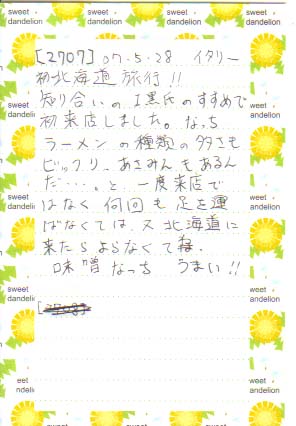 sweet dandelion
[2707] 07.5.28 イタリー
初北海道旅行!!
知り合いの工黒氏のすすめで
初来店しました。なっち
ラーメンの種類の多さも
ビックリ、あさみんもあるん
だ・・・。と、一度来店で
はなく何回も足を運
ばなくては、又北海道に
来たらよらなくては。
味噌なっち うまい!!
sweet dandelion